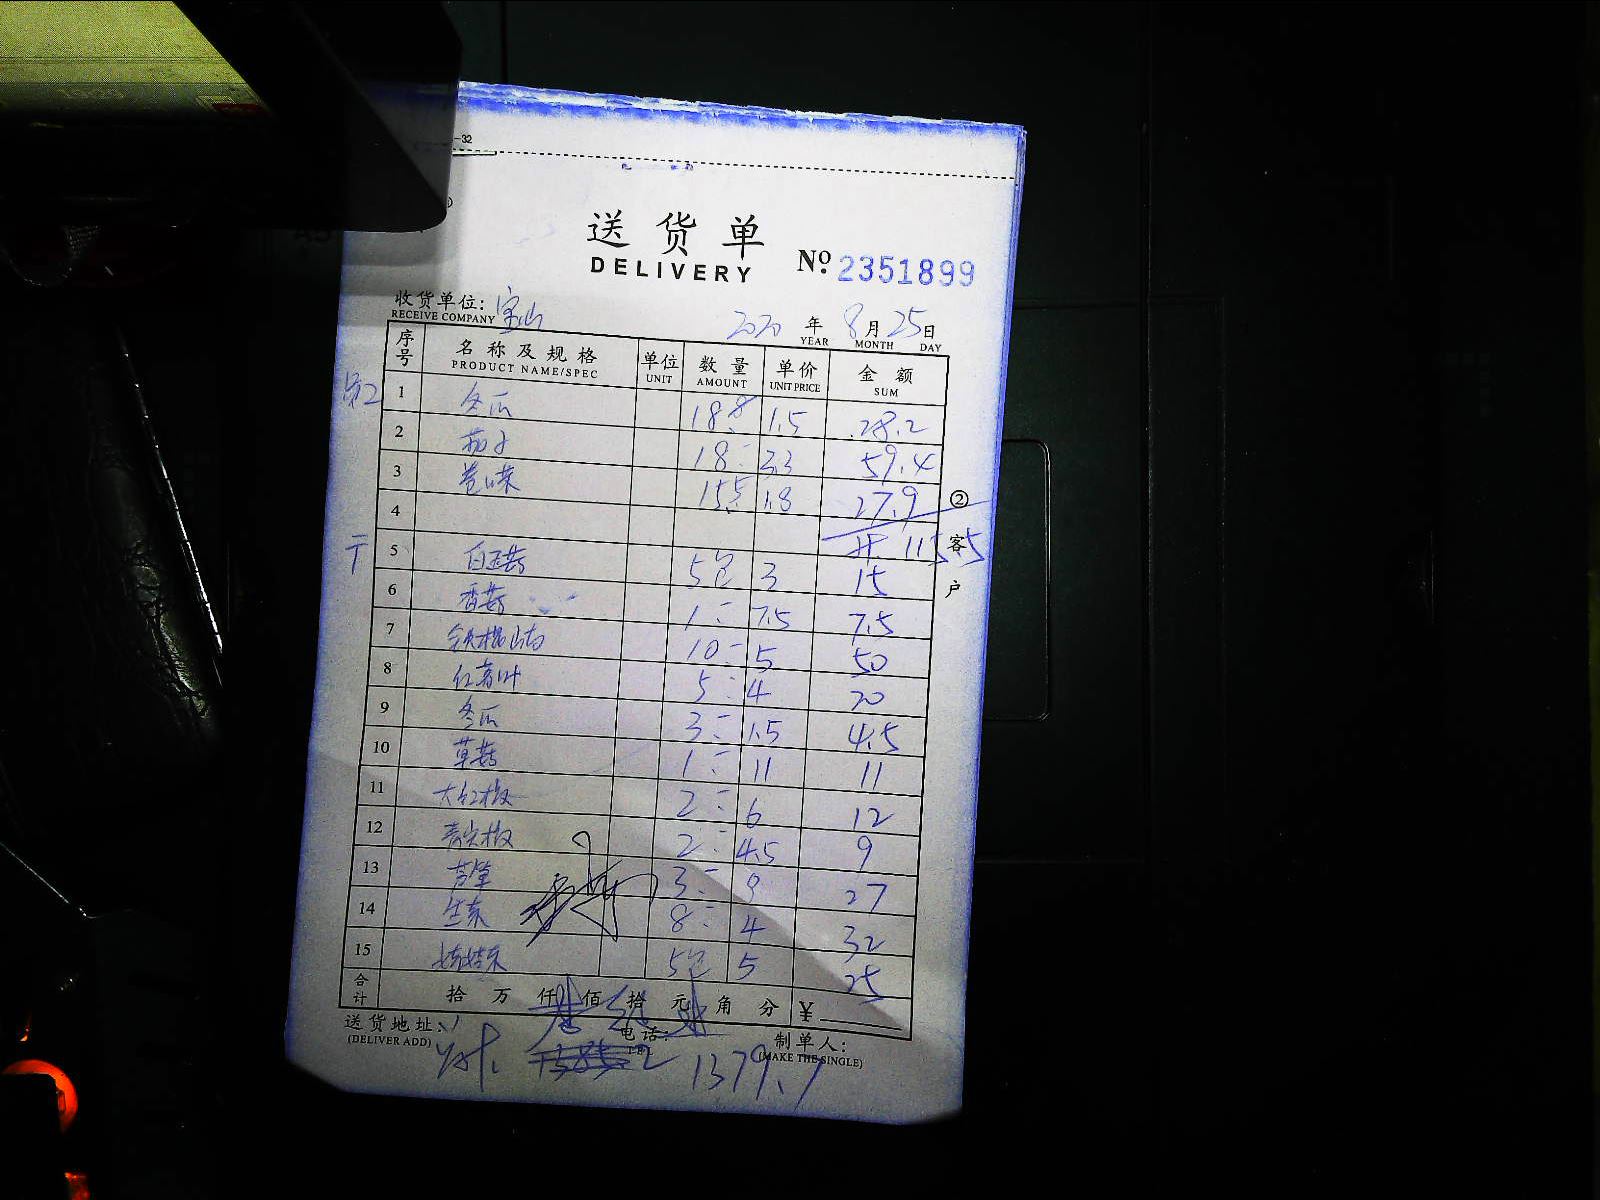 -32
送货单
DELIVERY
№ 2351899
收货单位: 宝山
RECEIVE COMPANY
2020 年 8 月 25 日
YEAR MONTH DAY
序号 名称及规格 单位 数量 单价 金额
PRODUCT NAME/SPEC UNIT AMOUNT UNIT PRICE SUM
1 冬瓜 18.8 1.5 28.2
2 茄子 18 3.3 59.4
3 卷心菜 15.5 1.8 27.9
4 115.5
5 白玉菇 5包 3 15
6 香菇 1 7.5 7.5
7 铁棍山药 10 5 50
8 红薯叶 5 4 20
9 冬瓜 3 1.5 4.5
10 草菇 1 11 11
11 大红椒 2 6 12
12 青尖椒 2 4.5 9
13 芦笋 3 9 27
14 生菜 8 4 32
15 娃娃菜 5包 5 25
合计 拾 万 仟 佰 拾 元 角 分 ¥
送货地址: 电话: 制单人:
(DELIVER ADD) TEL (MAKE THE SINGLE)
1379.7
② 客户